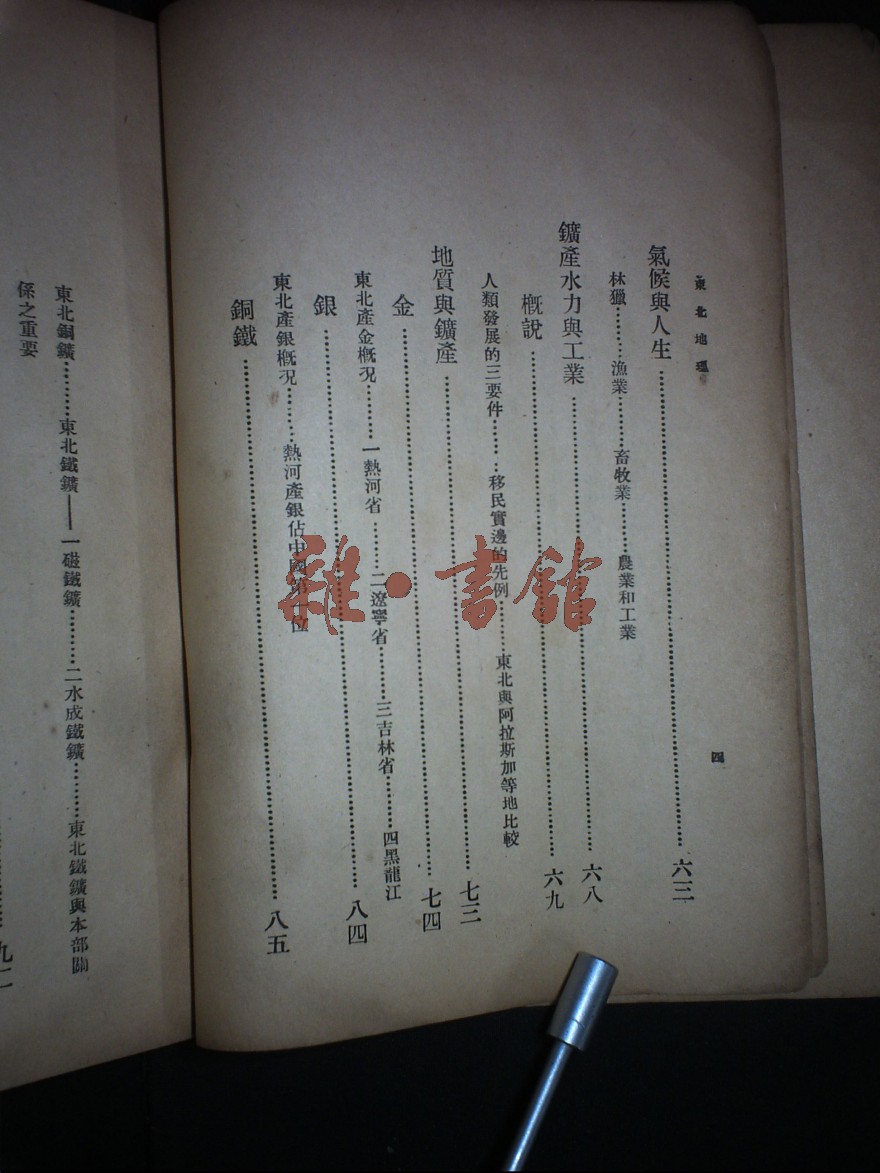 東北地理
四
氣候與人生……六三
林獵………漁業………畜牧業………農業和工業
鑛產水力與工業……六八
槪說……六九
人類發展的三要件………移民實邊的先例………東北與阿拉斯加等地比較
地質與鑛產……七三
金……七四
東北產金槪况………一熱河省………二遼寧省………三吉林省………四黑龍江
銀……八四
東北產銀槪况………熱河產銀佔中國第一位
銅鐵……八五
東北銅鑛………東北鐵鑛——一磁鐵鑛………二水成鐵鑛………東北鐵鑛與本部關
係之重要
雜·書館